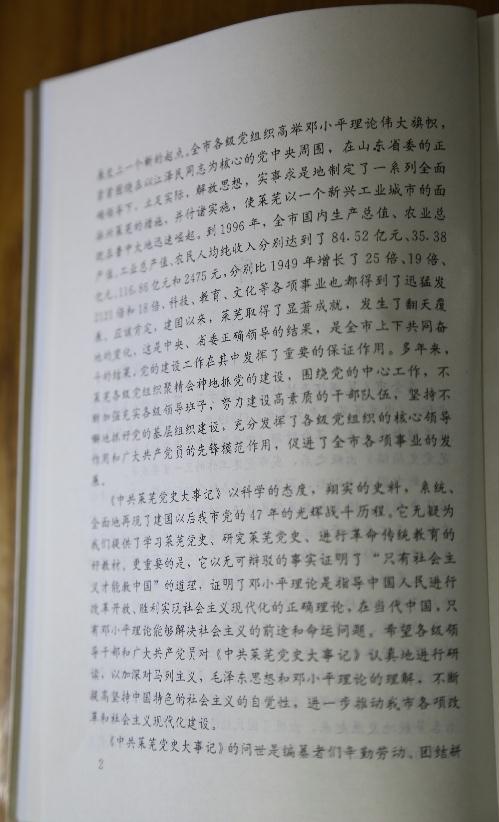 展史上一个新的起点。全市各级党组织高举邓小平理论伟大旗帜,
紧密团结在以江泽民同志为核心的党中央周围,在山东省委的正
确领导下,立足实际,解放思想,实事求是地制定了一系列全面
振兴莱芜的措施,并付诸实施,使莱芜以一个新兴工业城市的面
貌在鲁中大地迅速崛起。到1996年,全市国内生产总值、农业总
产值、工业总产值、农民人均纯收入分别达到了84.52亿元、35.38
亿元、116.86亿元和2475元,分别比1949年增长了25倍、19倍、
2121倍和18倍,科技、教育、文化等各项事业也都得到了迅猛发
展。应该肯定,建国以来,莱芜取得了显著成就,发生了翻天覆
地的变化,这是中央、省委正确领导的结果,是全市上下共同奋
斗的结果,党的建设工作在其中发挥了重要的保证作用。多年来,
莱芜各级党组织聚精会神地抓党的建设,围绕党的中心工作,不
断加强充实各级领导班子,努力建设高素质的干部队伍,坚持不
懈地抓好党的基层组织建设,充分发挥了各级党组织的核心领导
作用和广大共产党员的先锋模范作用,促进了全市各项事业的发
展。
《中共莱芜党史大事记》以科学的态度,翔实的史料,系统、
全面地再现了建国以后我市党的47年的光辉战斗历程。它无疑为
我们提供了学习莱芜党史、研究莱芜党史、进行革命传统教育的
好教材。更重要的是,它以无可辩驳的事实证明了“只有社会主
义才能救中国”的道理,证明了邓小平理论是指导中国人民进行
改革开放、胜利实现社会主义现代化的正确理论,在当代中国,只
有邓小平理论能够解决社会主义的前途和命运问题。希望各级领
导干部和广大共产党员对《中共莱芜党史大事记》认真地进行研
读,以加深对马列主义,毛泽东思想和邓小平理论的理解,不断
提高坚持中国特色的社会主义的自觉性,进一步推动我市各项改
革和社会主义现代化建设。
《中共莱芜党史大事记》的问世是编纂者们辛勤劳动、团结研
2